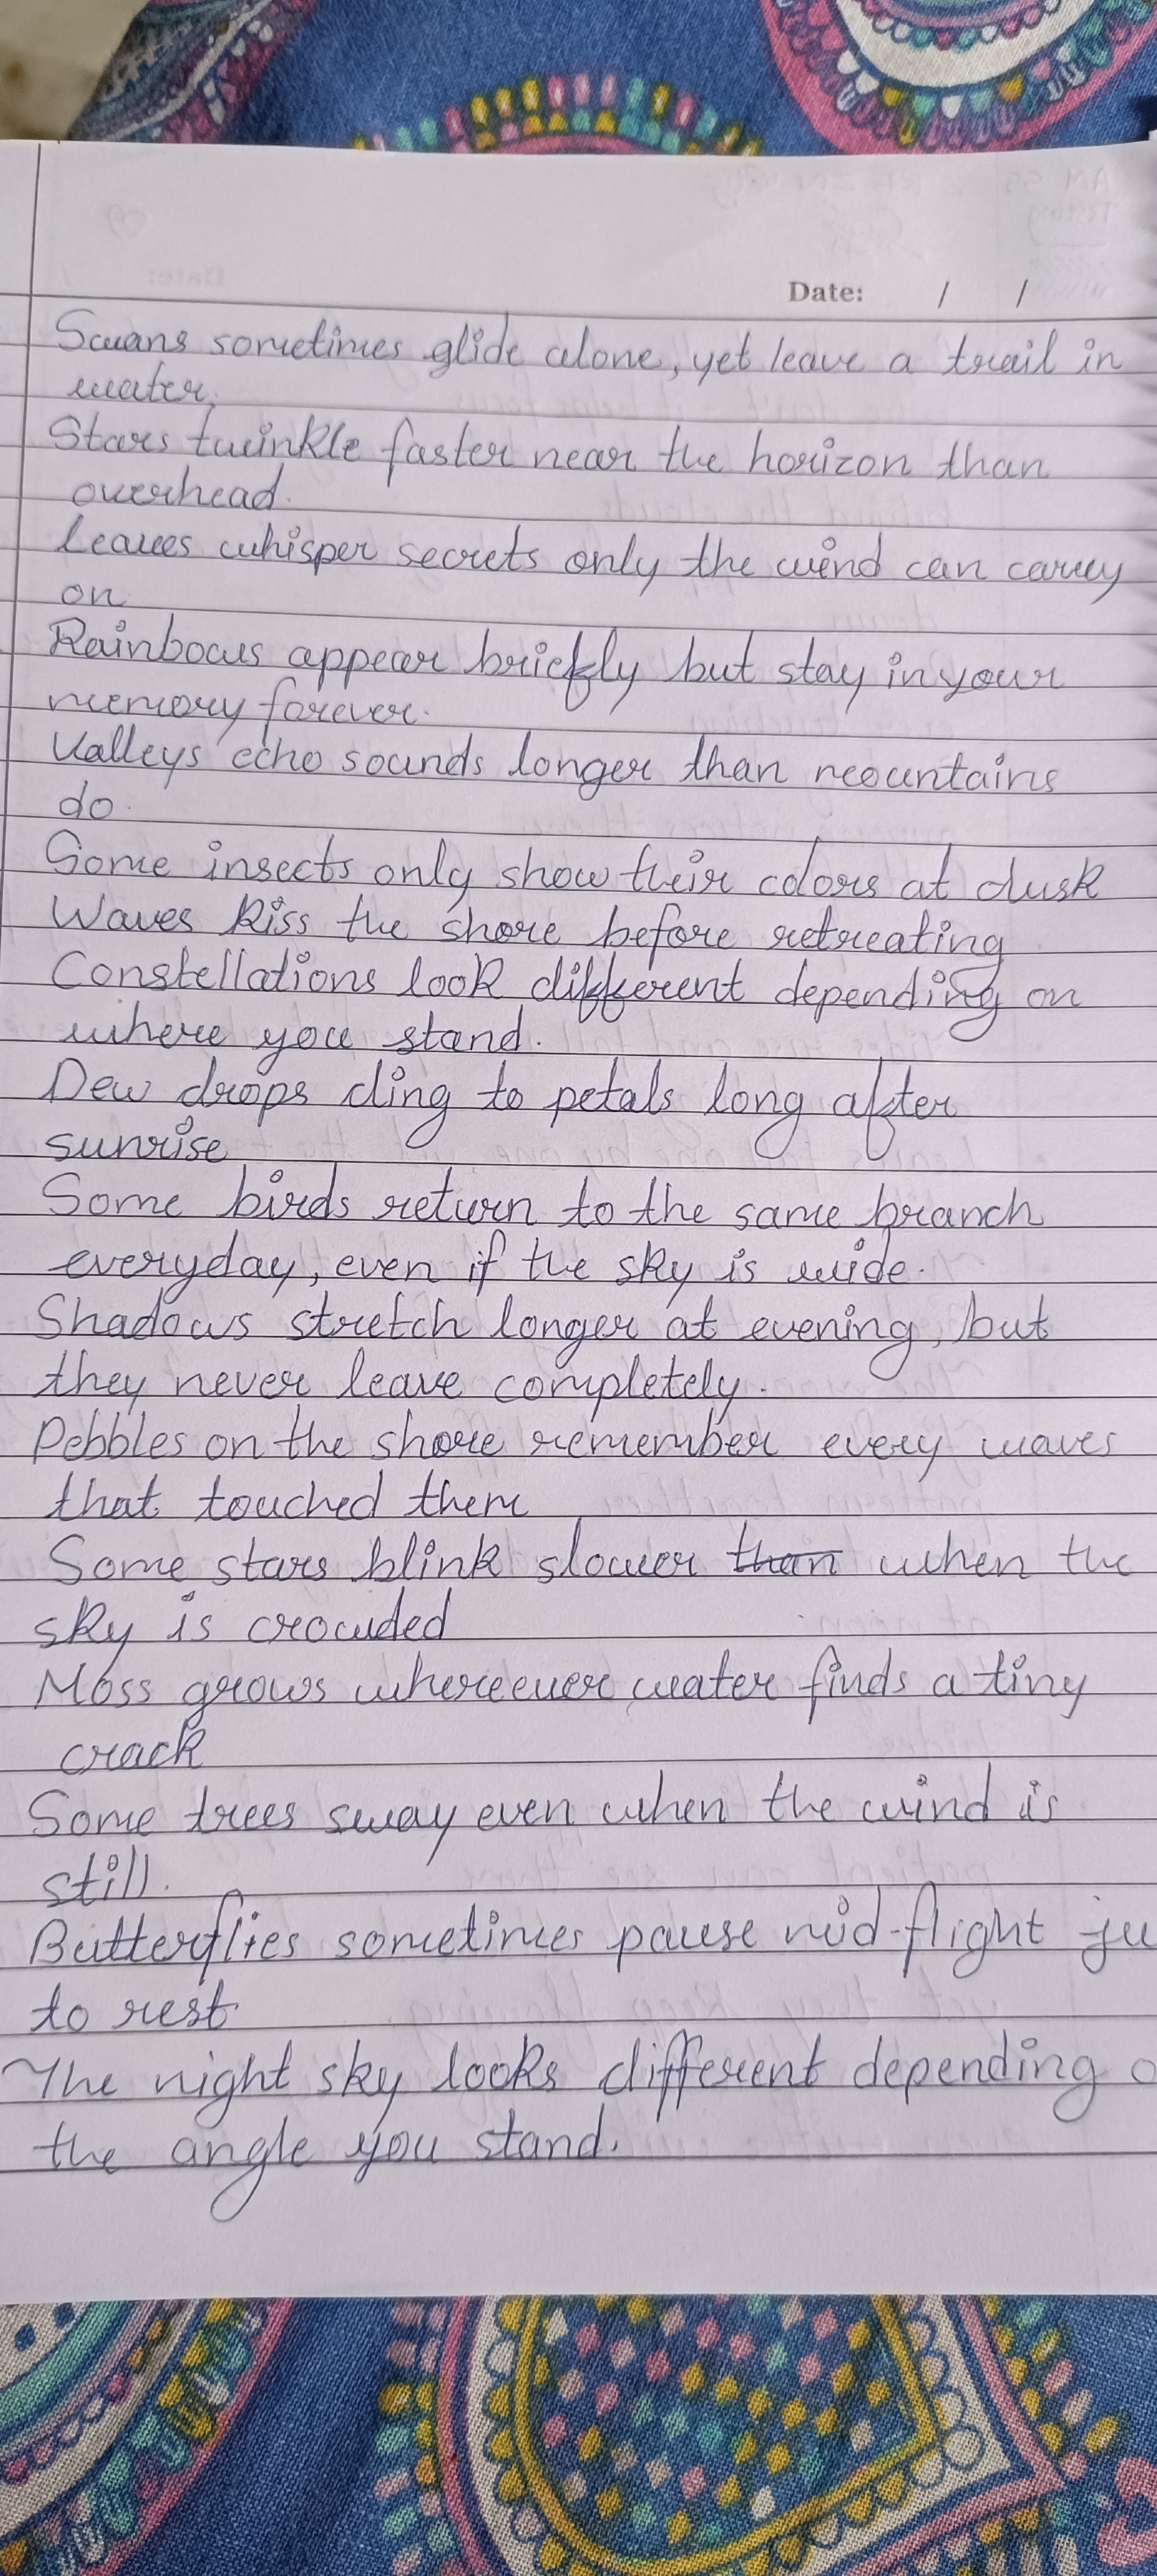 Date: / /
Swans sometimes glide alone, yet leave a trail in
water.
Stars twinkle faster near the horizon than
overhead.
Leaves whisper secrets only the wind can carry
on
Rainbows appear briefly but stay in your
memory forever.
Valleys echo sounds longer than mountains
do.
Some insects only show their colors at dusk
Waves kiss the shore before retreating
Constellations look different depending on
where you stand.
Dew drops cling to petals long after
sunrise
Some birds return to the same branch
everyday, even if the sky is wide.
Shadows stretch longer at evening, but
they never leave completely.
Pebbles on the shore remember every waves
that touched them
Some stars blink slower than when the
sky is crowded
Moss grows whereever water finds a tiny
crack
Some trees sway even when the wind is
still.
Butterflies sometimes pause mid-flight ju
to rest
The night sky looks different depending
the angle you stand.